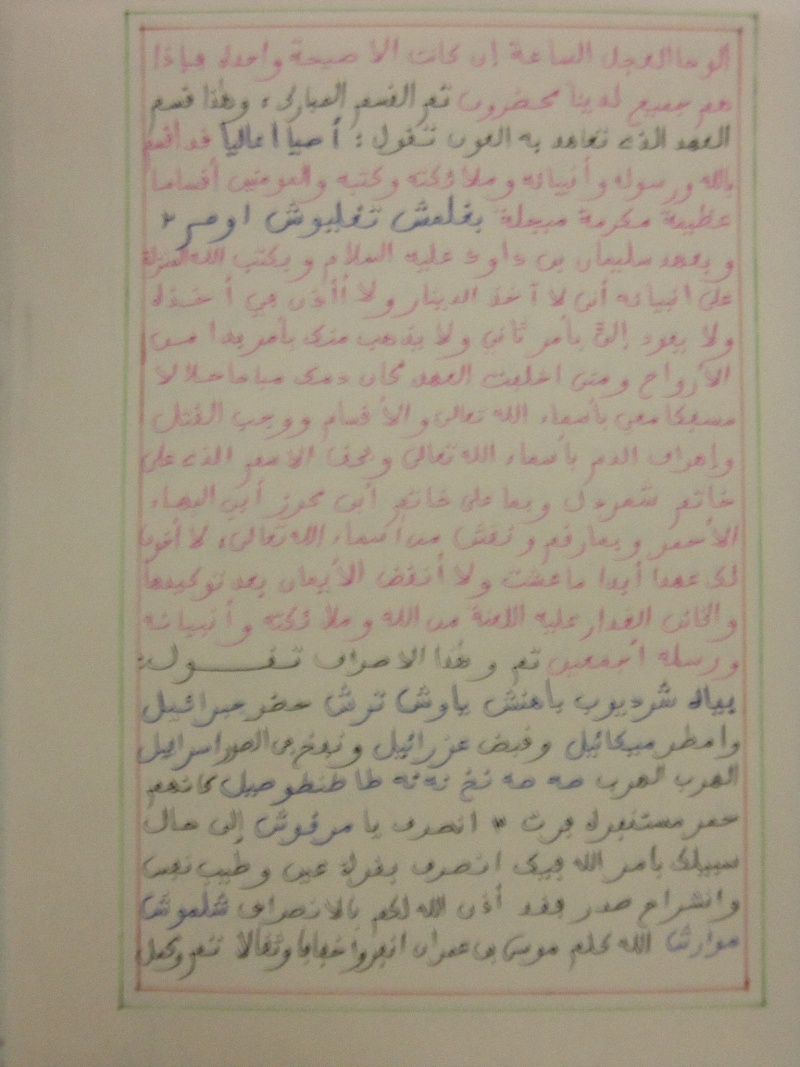 الوحا العجل الساعة إن كانت الا صيحة واحدة فإذا
هم جميع لدينا محضرون تم القسم المبارك، وهذا قسم
العهد الذي تعاهد به العون تقول : أهيا اعاليا قد اقسم
بالله ورسوله وأنبيائه وملائكته وكتبه والمومنين أقساما
عظيمة مكرمة مبجلة بغلمش تغليوش اومر ٢
وبعهد سليمان بن داود عليه السلام وبكتب الله المنزلة
على انبيائه أني لا آخذ الدينار ولا أأذن في أخذه
ولا يعود إليّ بأمر ثاني ولا يذهب منك بأمر بدا من
الأرواح ومتى اخلفت العهد كان دمك مباحا حلالا
مسفكا معي بأسماء الله تعالى والأقسام ووجب القتل
وإهراق الدم بأسماء الله تعالى وبحق الاسم الذي على
خاتم شمردل وبما على خاتم أبي محرز أبي البهاء
الأحمر وبما رقم ونقش من أسماء الله تعالى، لا أخون
لك عهدا أبدا ما عشت ولا أنقض الأيمان بعد توكيدها
والخائن الغدار عليه اللعنة من الله وملائكته وأنبيائه
ورسله أجمعين تم وهذا الاصراف تقــــول:
بياه شرديوب باهنش ياوش ترش حضر جبرائيل
وامطر ميكائيل وقبض عزرائيل ونفخ في الصور اسرافيل
الهرب الهرب صه صه نخ نه نه طا طنطوحيل كانهم
حمر مستنفرة فرت ٣ انصرف يا مرقوش إلى حال
سبيلك بأمر الله فيك انصرف بقرة عين وطيب نفس
وانشراح صدر فقد أذن الله لكم بالانصراف شلموش
موارش الله كلم موسى بن عمران انفروا خفافا وثقالا تتم وكمل